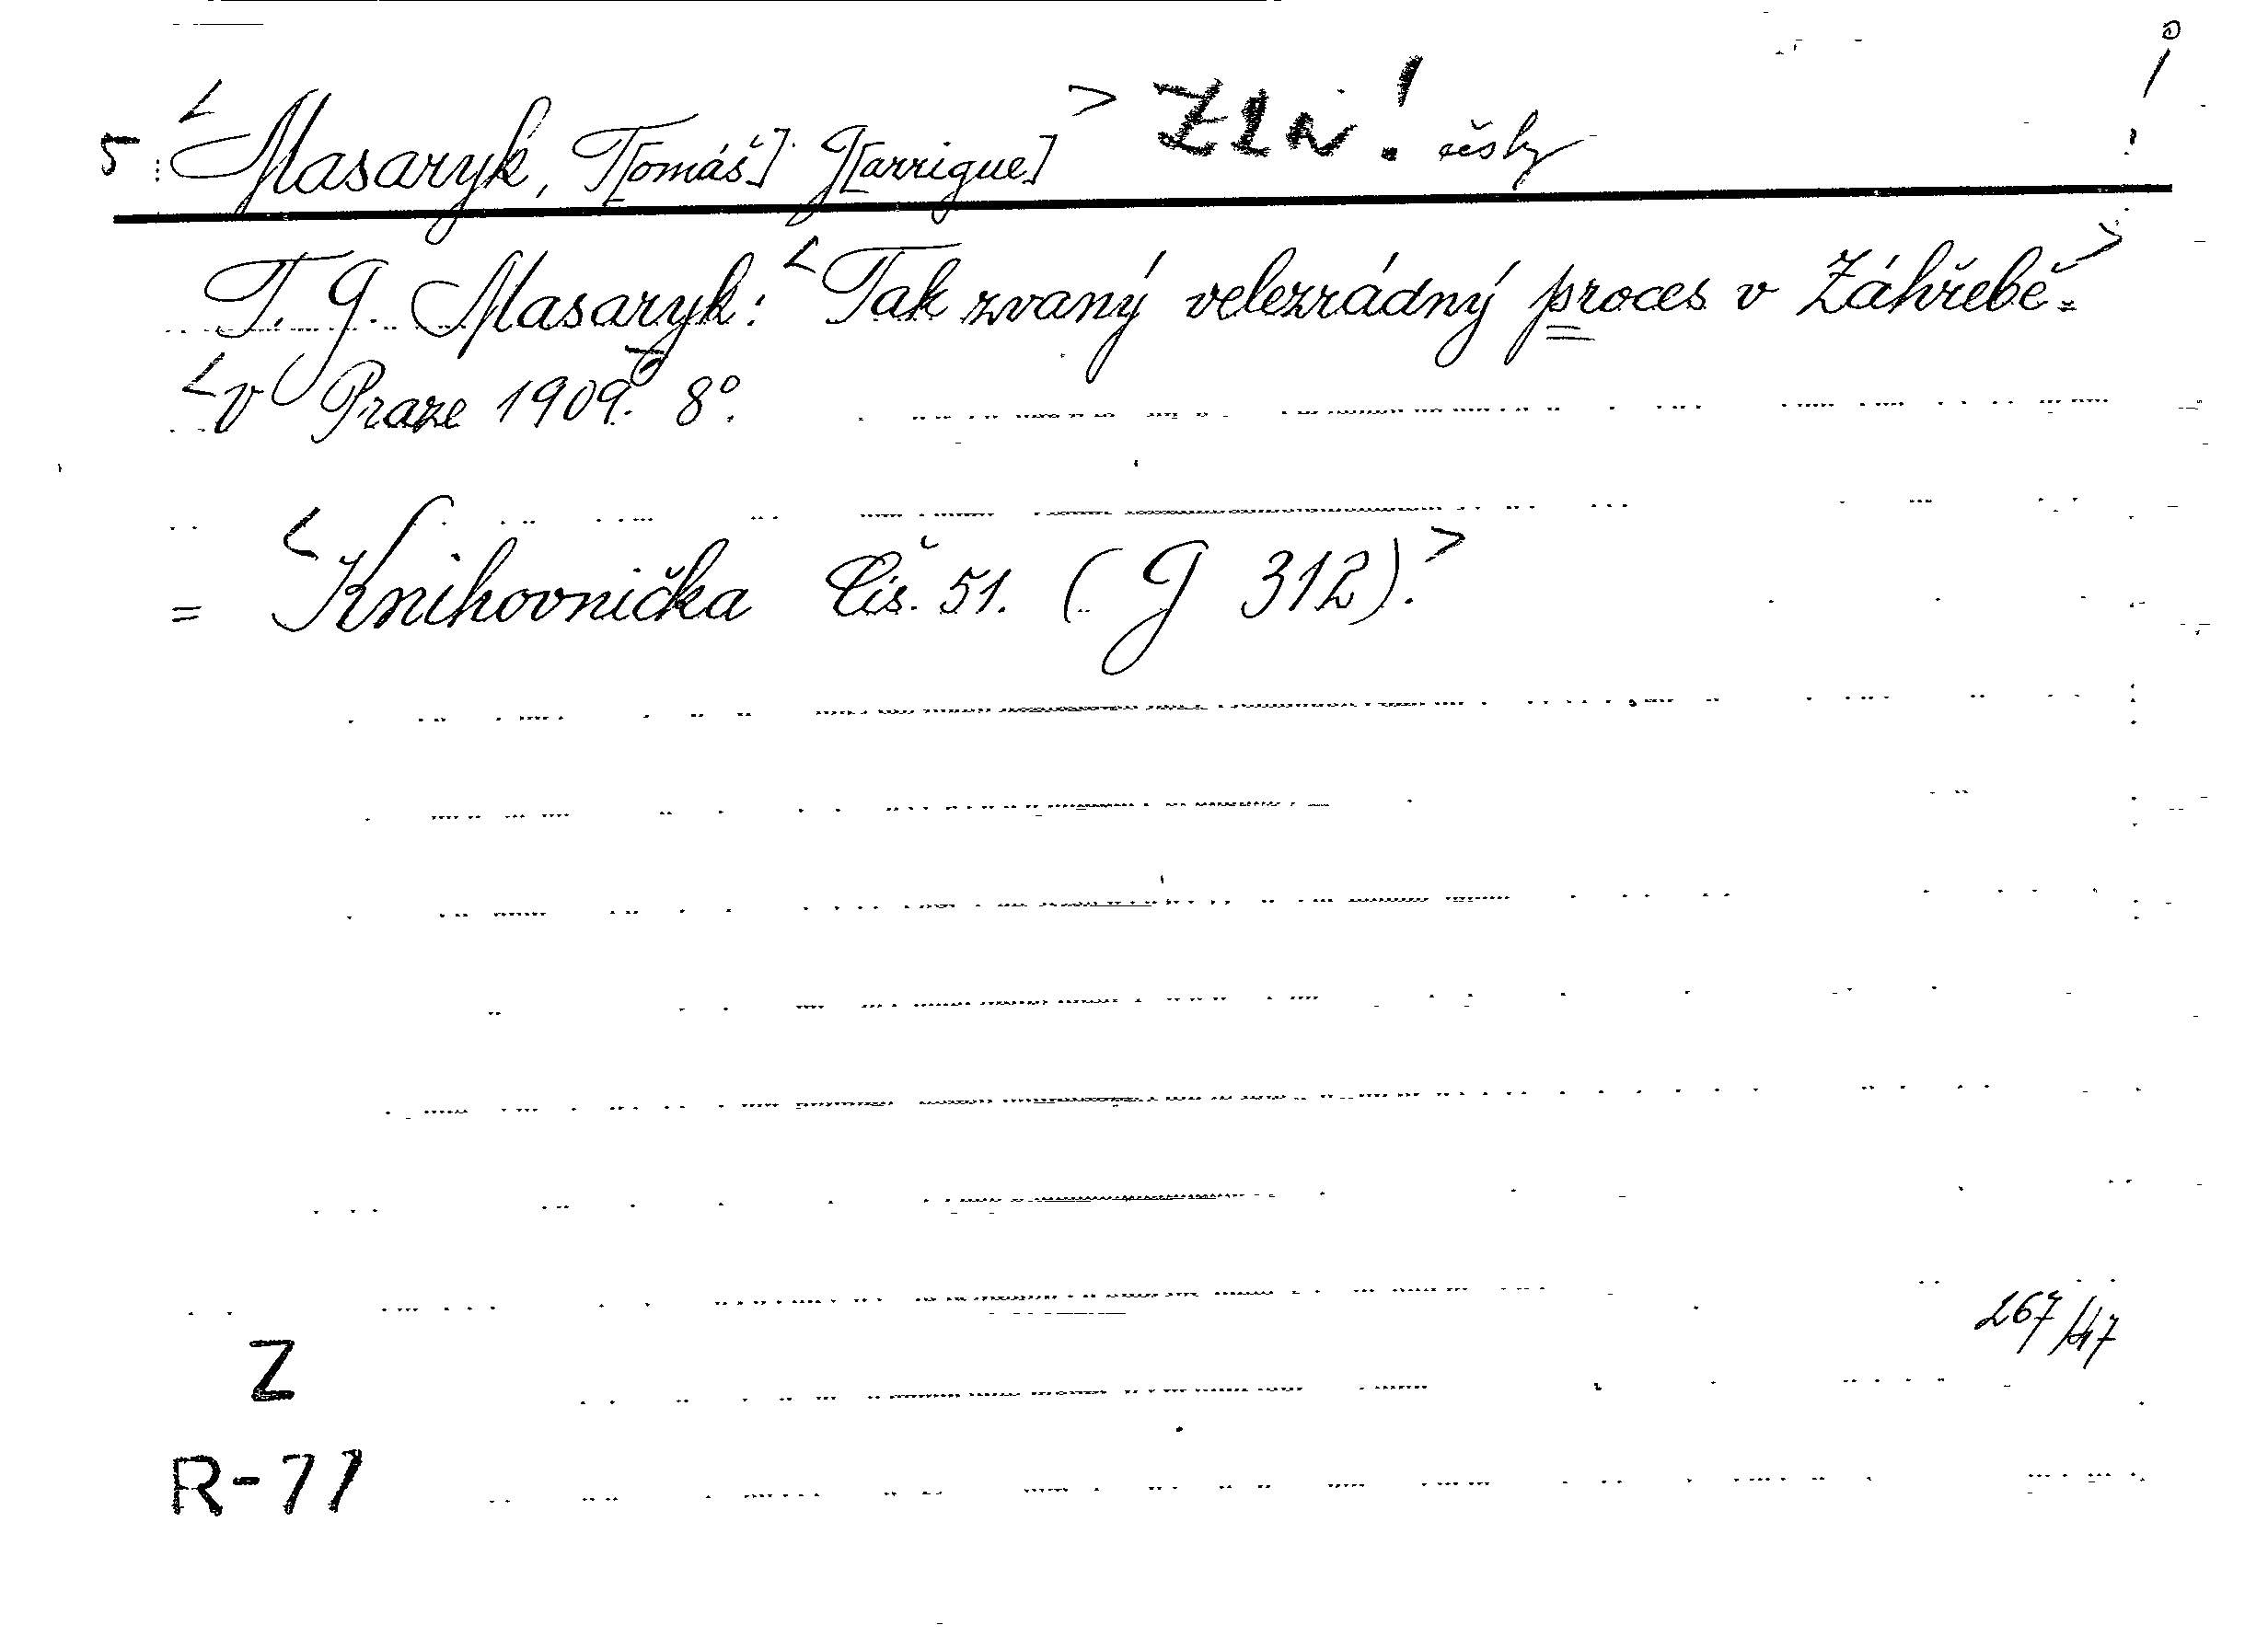 5 <Masaryk, T[omáš] G[arrigue]> ! česky
T. G. Masaryk: <Tak zvaný velezrádný proces v Záhřebě.>
<V Praze 1909. 8°.
= <Knihovnička Čís. 51. (G 312).>
267/47
Z
R-77